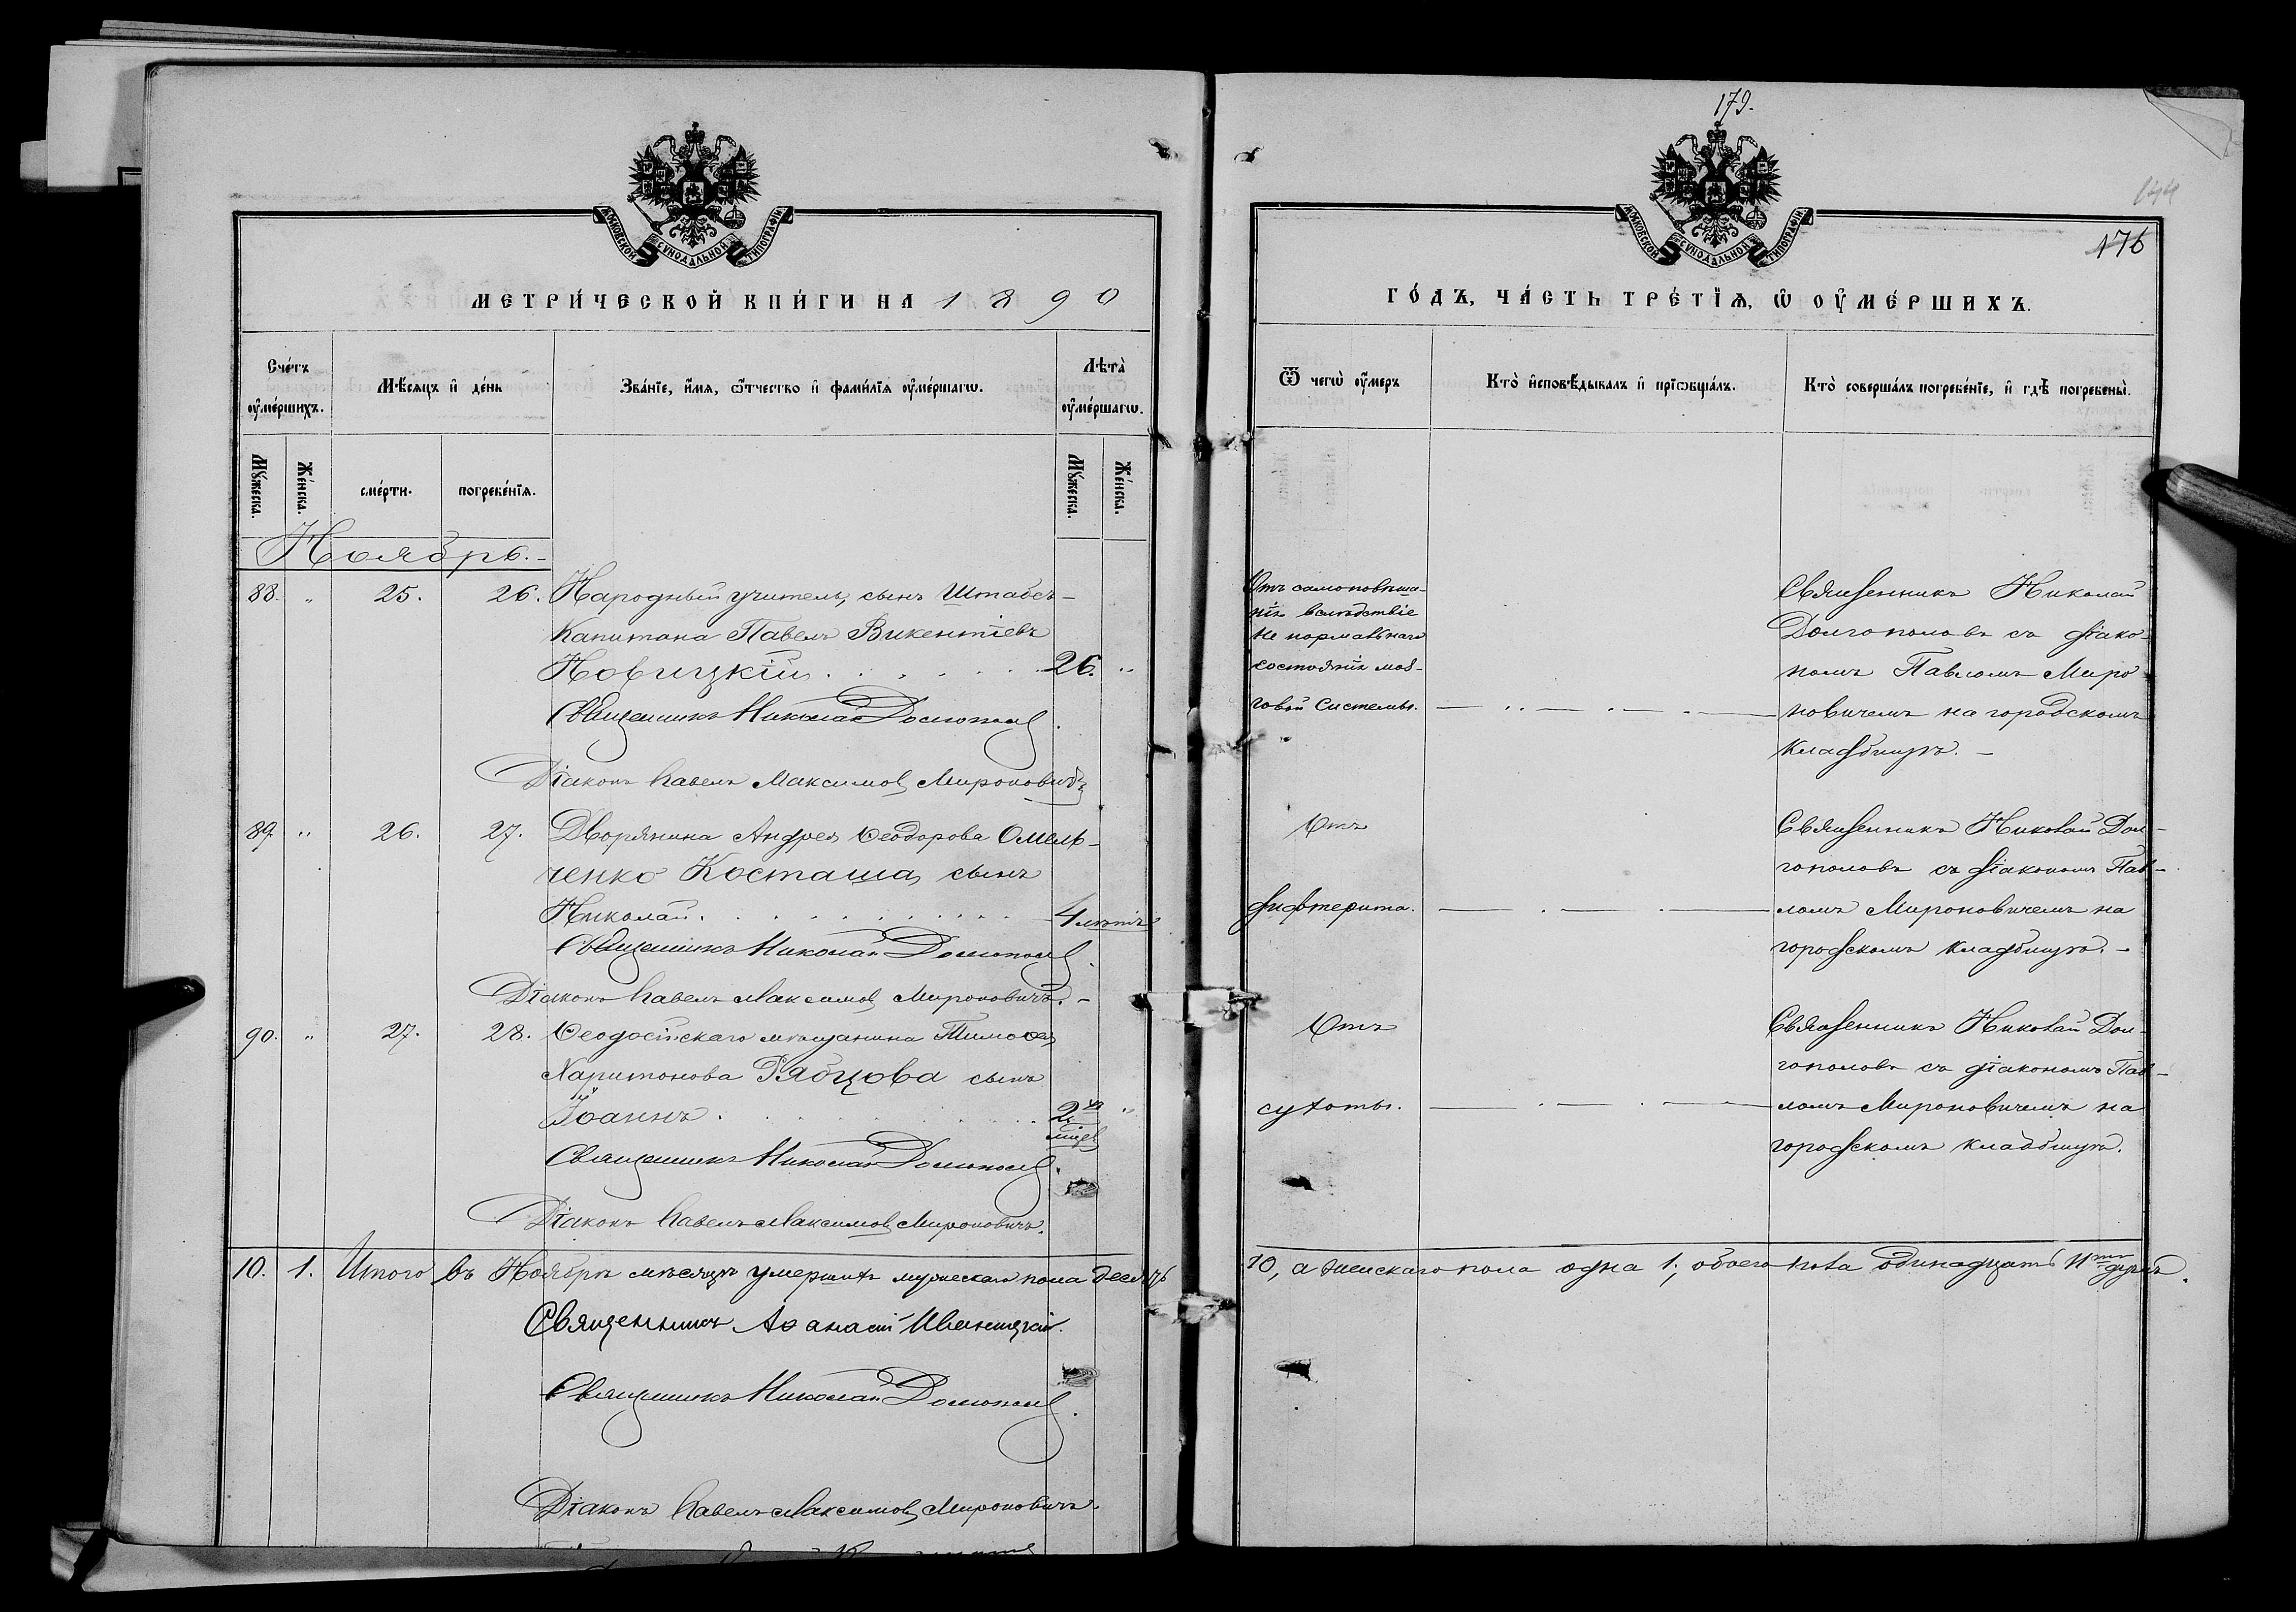 МОСКОВСКОЙ СѴНОДАЛЬНОЙ ТИПОГРАФІИ
МЕТРИ́ЧЕСКОЙ КНИ́ГИ НА 1890
Сче́тъ ᲂу҆ме́ршихъ.
Мѣ́сяцъ и҆ де́нь
Зва́нїе, и҆́мя, ѻ҆́тчество и҆ фами́лїя ᲂу҆ме́ршагѡ.
Лѣта̀ ᲂу҆ме́ршагѡ.
Мꙋ́жеска.
Же́нска.
сме́рти.
погребе́нїя.
Мꙋ́жеска.
Же́нска.
Ноябрь.-
88. „ 25. 26. Народный учитель, сынъ Штабсъ-
Капитана Павелъ Викентіевъ
Новицкій . . . . . . 26. „
Священникъ Николай Долгополов.
Діаконъ Павелъ Максимов Мироновичъ
89. „ 26. 27. Дворянина Андрея Ѳеодорова Омель-
ченко Косташа, сынъ
Николай. . . . . . . . . 4 лѣтъ
Священникъ Николай Долгополов.
Діаконъ Павелъ Максимов Мироновичъ.-
90. „ 27. 28. Ѳеодосійскаго мѣщанина Тимоѳея
Харитонова Рябцова сынъ
Іоаннъ . . . . . . . 2хъ „
міцев
Священникъ Николай Долгополов.
Діаконъ Павелъ Максимов Мироновичъ.
10. 1. Итого въ Ноябрѣ мѣсяцѣ умершихъ мужескаго пола десять
Священникъ Аѳанасій
Священникъ Николай Долгополов.
Діаконъ Павелъ Максимов Мироновичъ.
179.
МОСКОВСКОЙ СѴНОДАЛЬНОЙ ТИПОГРАФІИ
176
ГО́ДЪ, ЧА́СТЬ ТРЕ́ТЇЯ, Ѡ҆ ОУ҆МЕ́РШИХЪ.
Ѿ чегѡ̀ ᲂу҆́меръ
Кто̀ и҆сповѣ́дывалъ и҆ прїѡбща́лъ.
Кто̀ соверша́лъ погребе́нїе, и҆ гдѣ̀ погребены̀.
Отъ самоповѣша-
нія вслѣдствіе
не нормальнаго
состоянія моз-
говой системы.
Священникъ Николай
Долгополовъ съ діако-
номъ Павломъ Миро-
новичемъ на городскомъ
кладбищѣ. -
Отъ
дифтерита.
Священникъ Николай Дол-
гополовъ съ діакономъ Пав-
ломъ Мироновичемъ на
городскомъ кладбищѣ. -
Отъ
сухоты.
Священникъ Николай Дол-
гополовъ съ діакономъ Пав-
ломъ Мироновичемъ на
городскомъ кладбищѣ.
10, а женскаго пола одна 1; обоего пола одинадцать 11ть душъ.